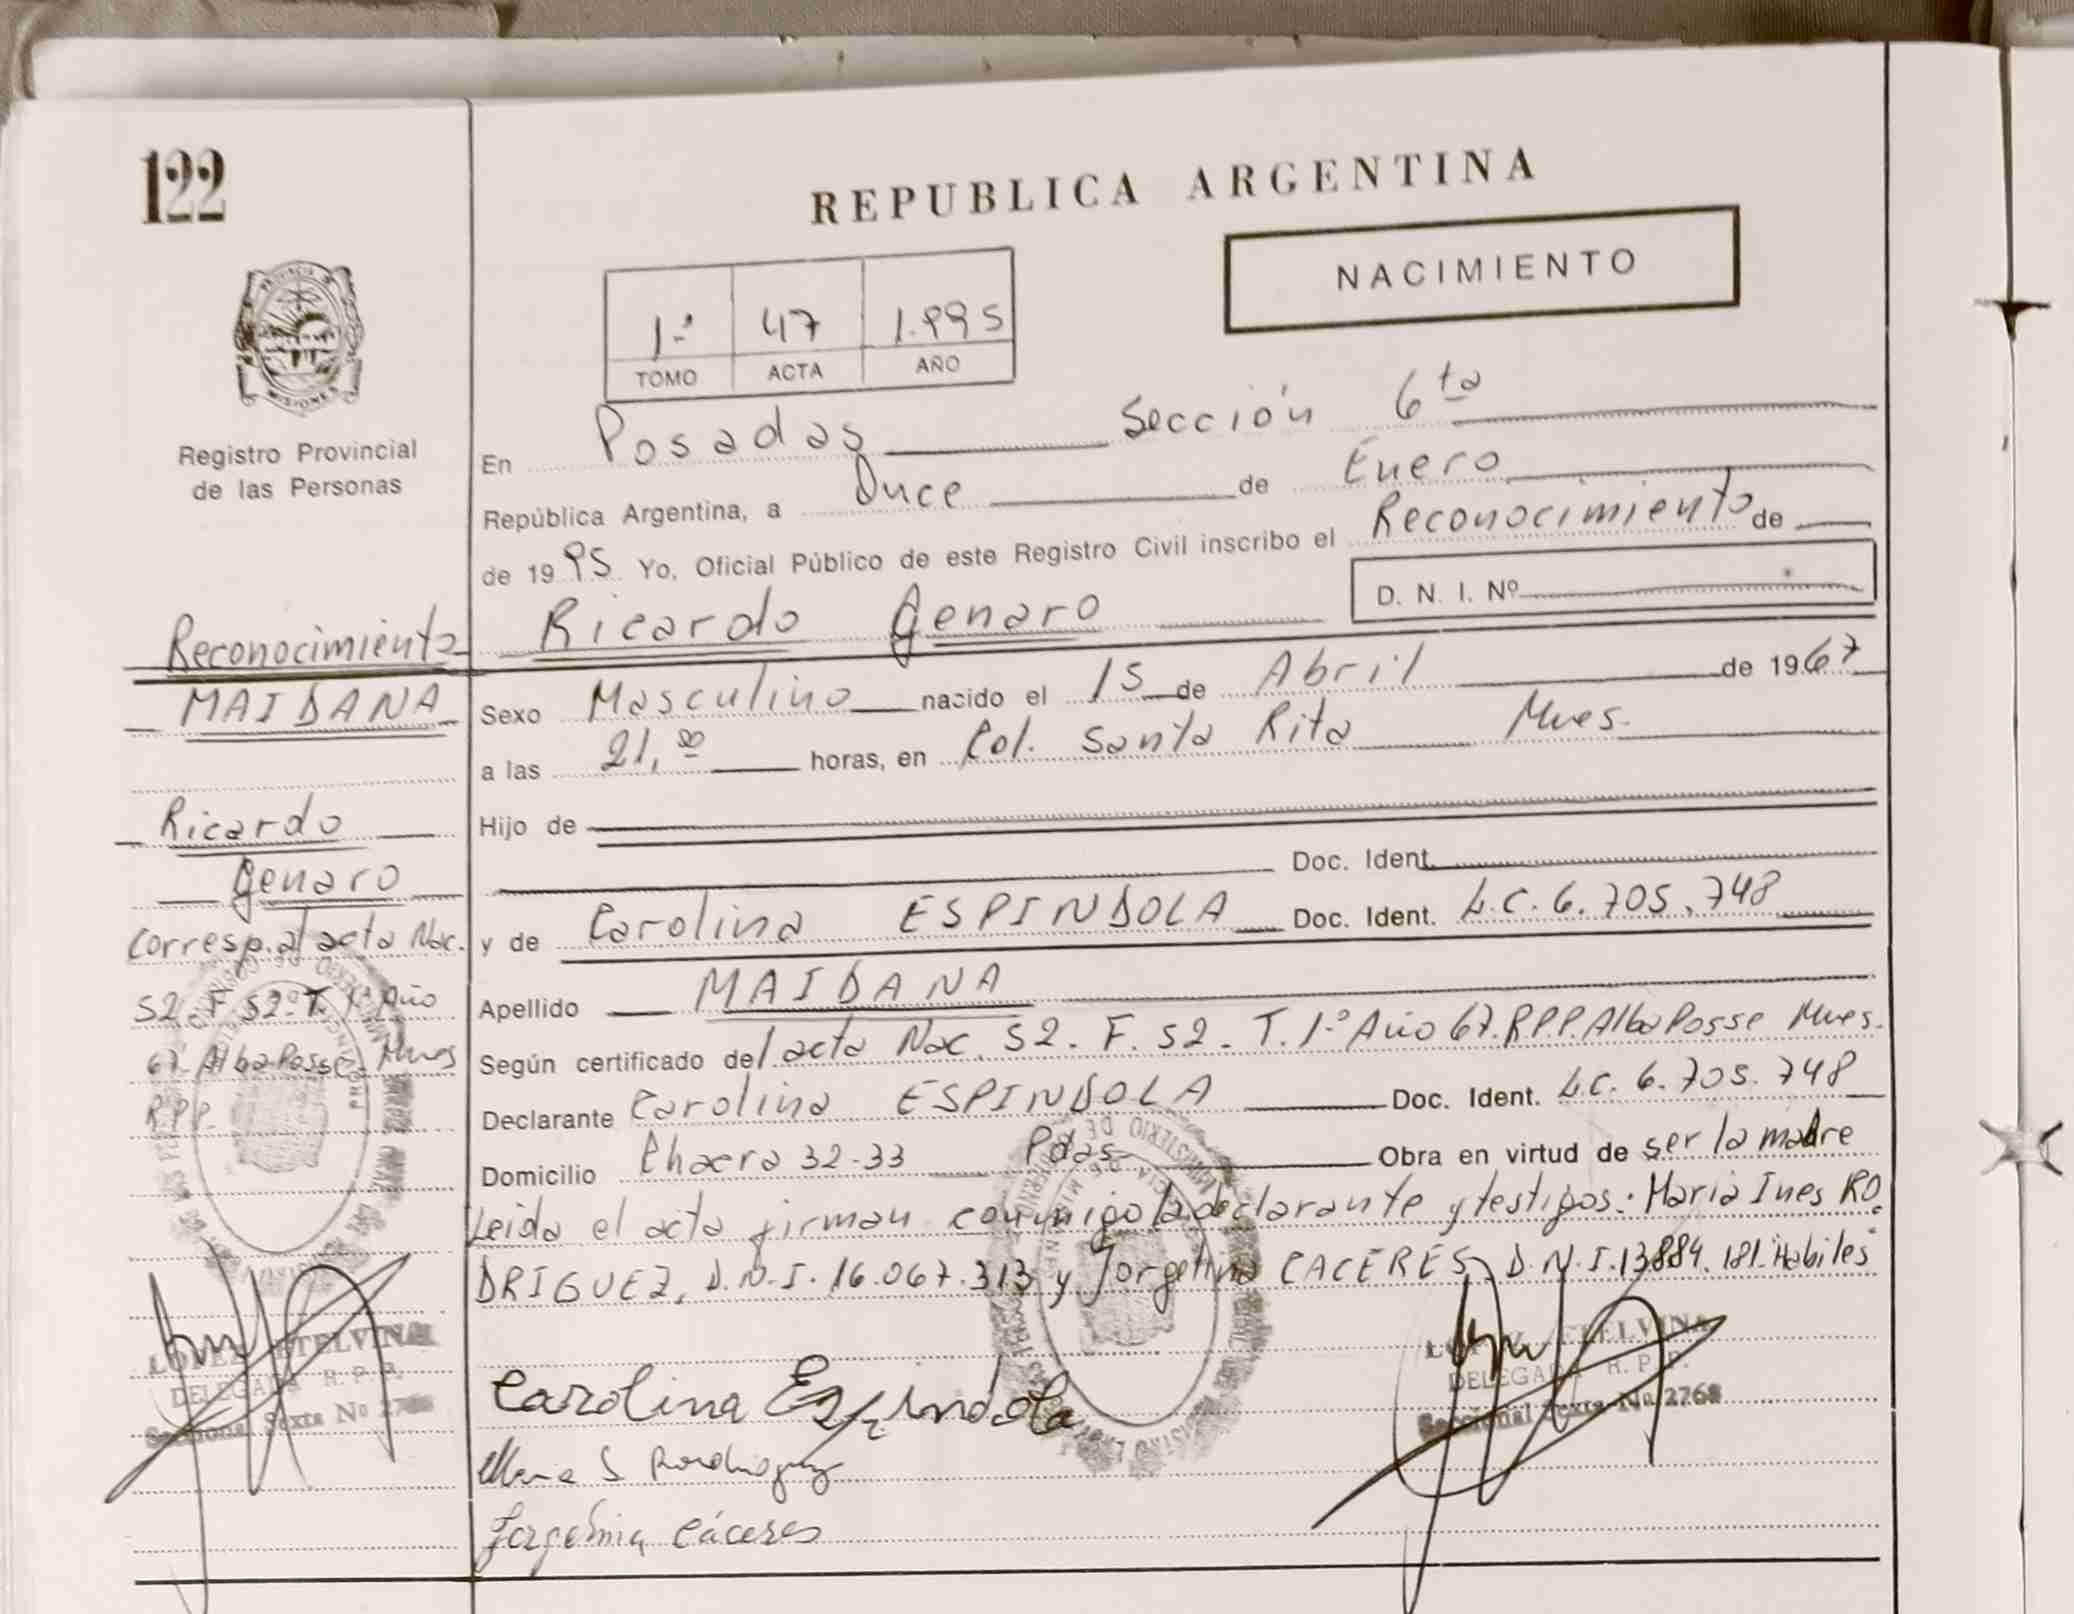 122
REPUBLICA ARGENTINA
NACIMIENTO
1.º 47 1.995
TOMO ACTA AÑO
PROVINCIA DE MISIONES
Registro Provincial
de las Personas
En Posadas Sección 6ta
República Argentina, a Once de Enero
de 1995 Yo, Oficial Público de este Registro Civil inscribo el Reconocimiento de
D. N. I. Nº
Ricardo Genaro
Reconocimiento
MAIDANA
Ricardo
Genaro
Corresp. al acta Nac.
52. F. 52. T. 1º Año
67. Alba Posse. Mnes
R.P.P.
Sexo Masculino nacido el 15 de Abril de 1967
a las 21,00 horas, en Col. Santa Rita Mnes.
Hijo de
Doc. Ident.
y de Carolina ESPINDOLA Doc. Ident. L.C. 6.705.748
Apellido MAIDANA
Según certificado del acta Nac. 52. F. 52. T. 1.º Año 67. R.P.P. Alba Posse Mnes.
Declarante Carolina ESPINDOLA Doc. Ident. L.C. 6.705.748
Domicilio Chacra 32-33 Pdas Obra en virtud de ser la madre
Leida el acta firman conmigo la declarante y testigos: Maria Ines RO
DRIGUEZ, D.N.I. 16.067.313 y Jorgelina CACERES, D.N.I. 13884.181. Habiles
LOPEZ ETELVINA
DELEGADA R. P. P.
Seccional Sexta Nº 2768
Carolina Espindola
LOPEZ ETELVINA
DELEGADA R. P. P.
Seccional Sexta Nº 2768
Rodriguez
Jorgelina Cáceres